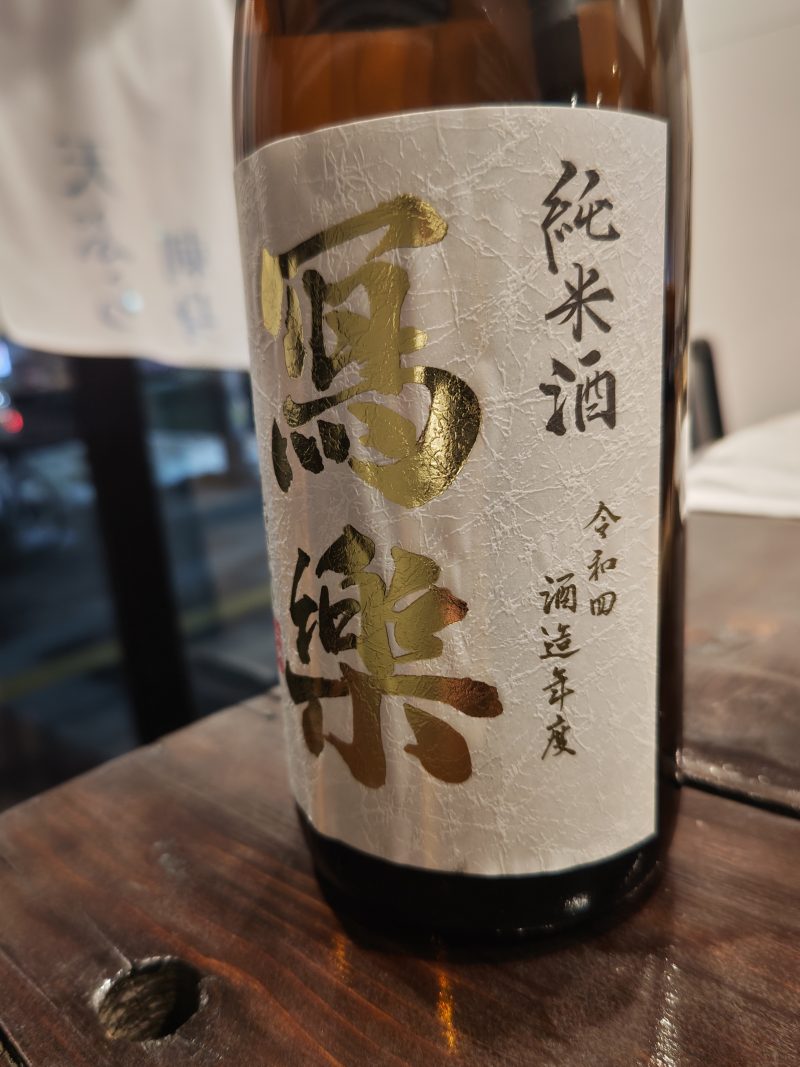 純米酒
令和四
酒造年度
冩樂